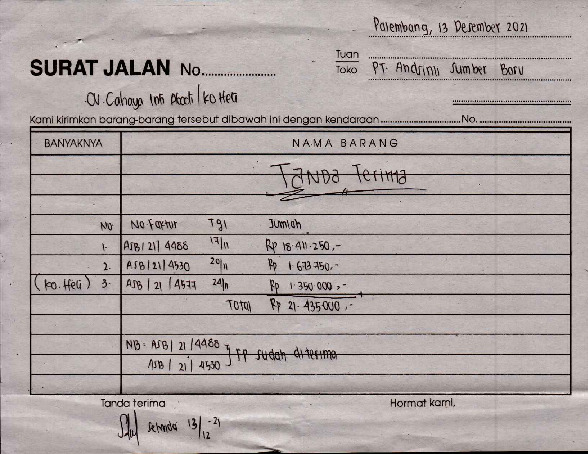 Palembang, 13 Desember 2021
SURAT JALAN No.
Tuan
Toko PT. Andrini Sumber Baru
CV. Cahaya Inti Abadi / Ko Heli
Kami kirimkan barang-barang tersebut dibawah ini dengan kendaraan No.
BANYAKNYA NAMA BARANG
TANDA Terima
No No Faktur Tgl Jumlah
1. ASB / 21 / 4488 17/11 Rp 18.411.250,-
2. ASB / 21 / 4530 20/11 Rp 1.673.750,-
(Ko. Heli) 3. ASB / 21 / 4577 24/11 Rp 1.350.000,-
Total Rp 21.435.000,-
NB: ASB / 21 / 4488
ASB / 21 / 4530 } FP sudah diterima
Tanda terima Hormat kami,
13/12-21